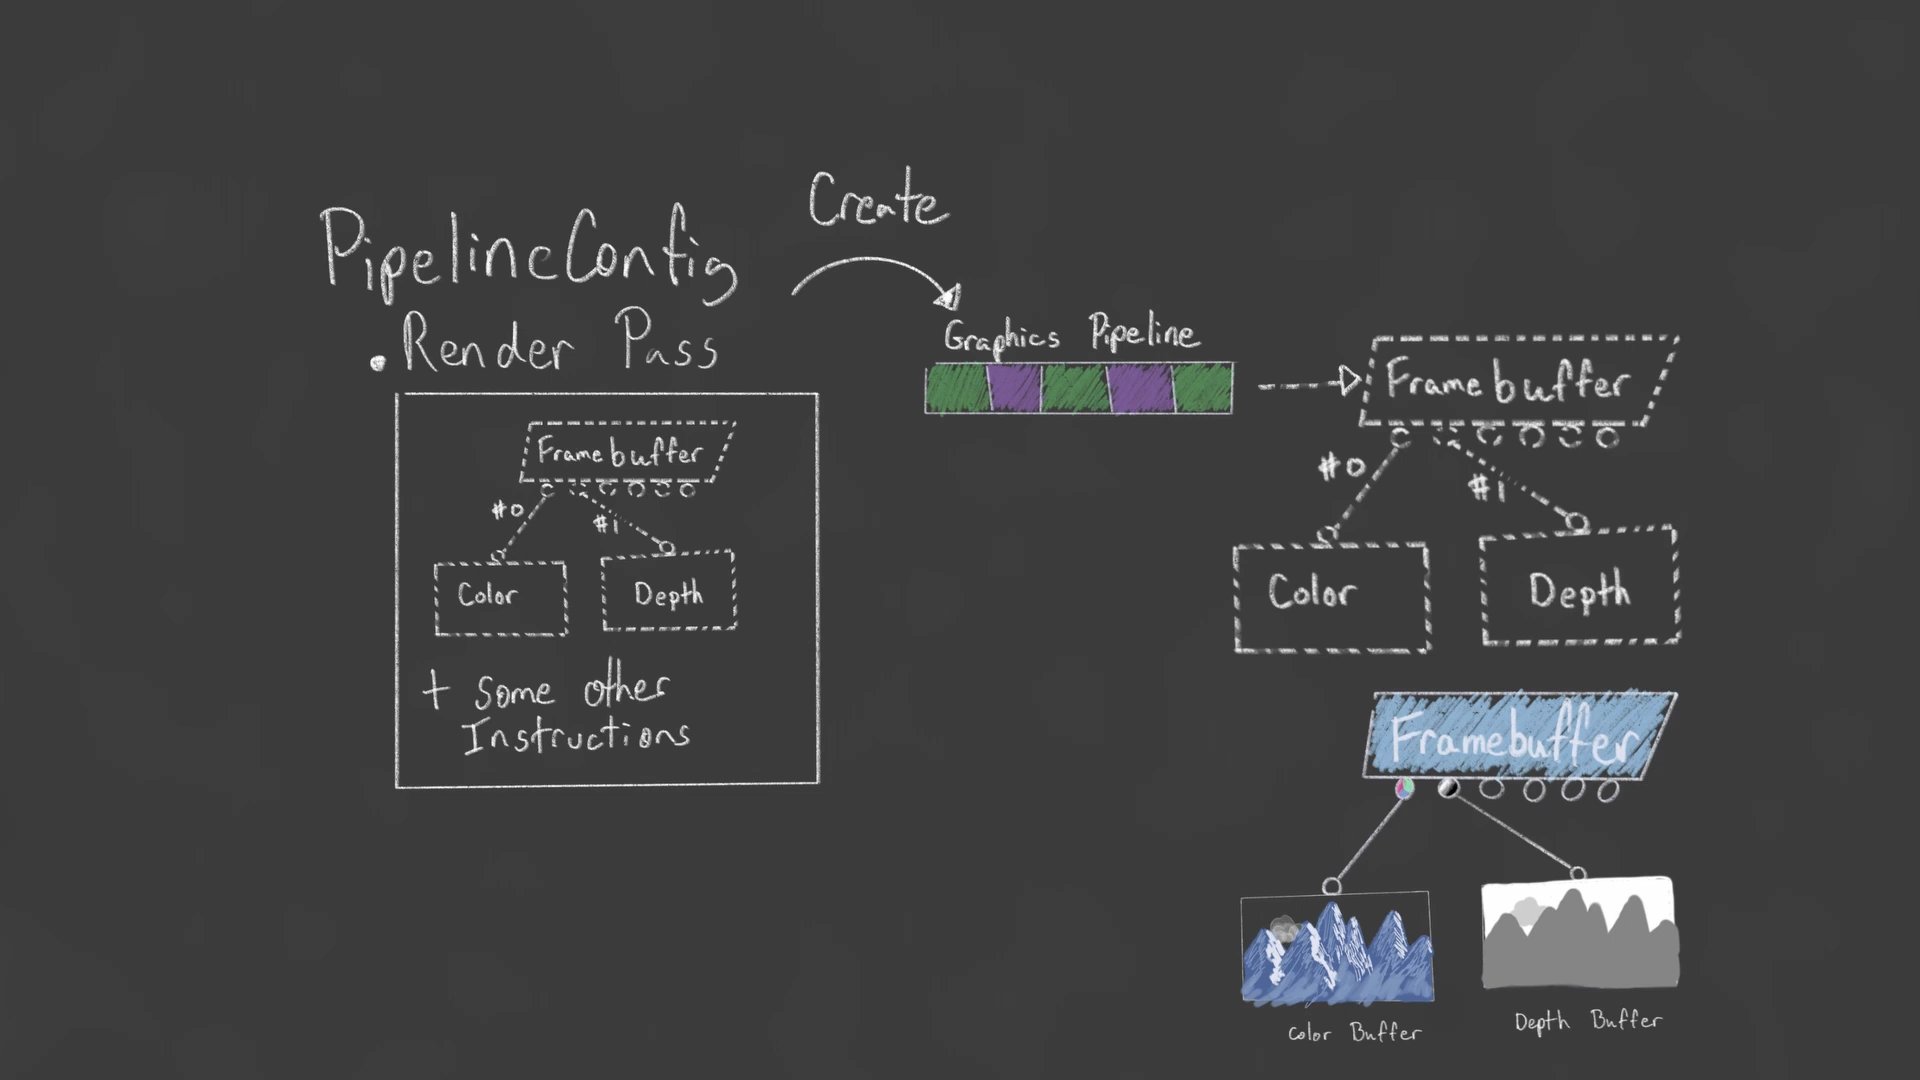 PipelineConfig
. Render Pass
Framebuffer
#0
#1
Color
Depth
+ some other
Instructions
Create
Graphics Pipeline
Framebuffer
#0
#1
Color
Depth
Framebuffer
Color Buffer
Depth Buffer